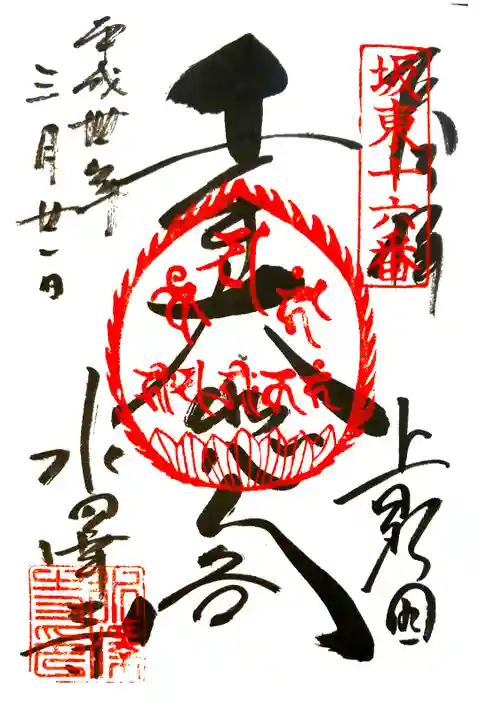 坂東十六番
奉拝
上野國
千手大悲閣
水澤寺
平成卅年
三月廿一日